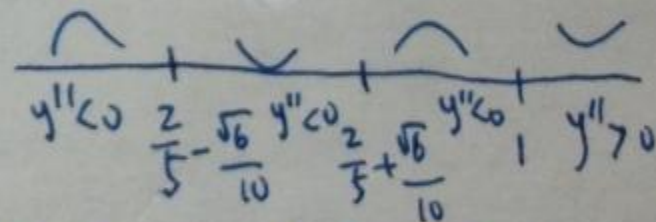 y''<0 2/5 - √6/10 y''<0 2/5 + √6/10 y''<0 1 y''>0